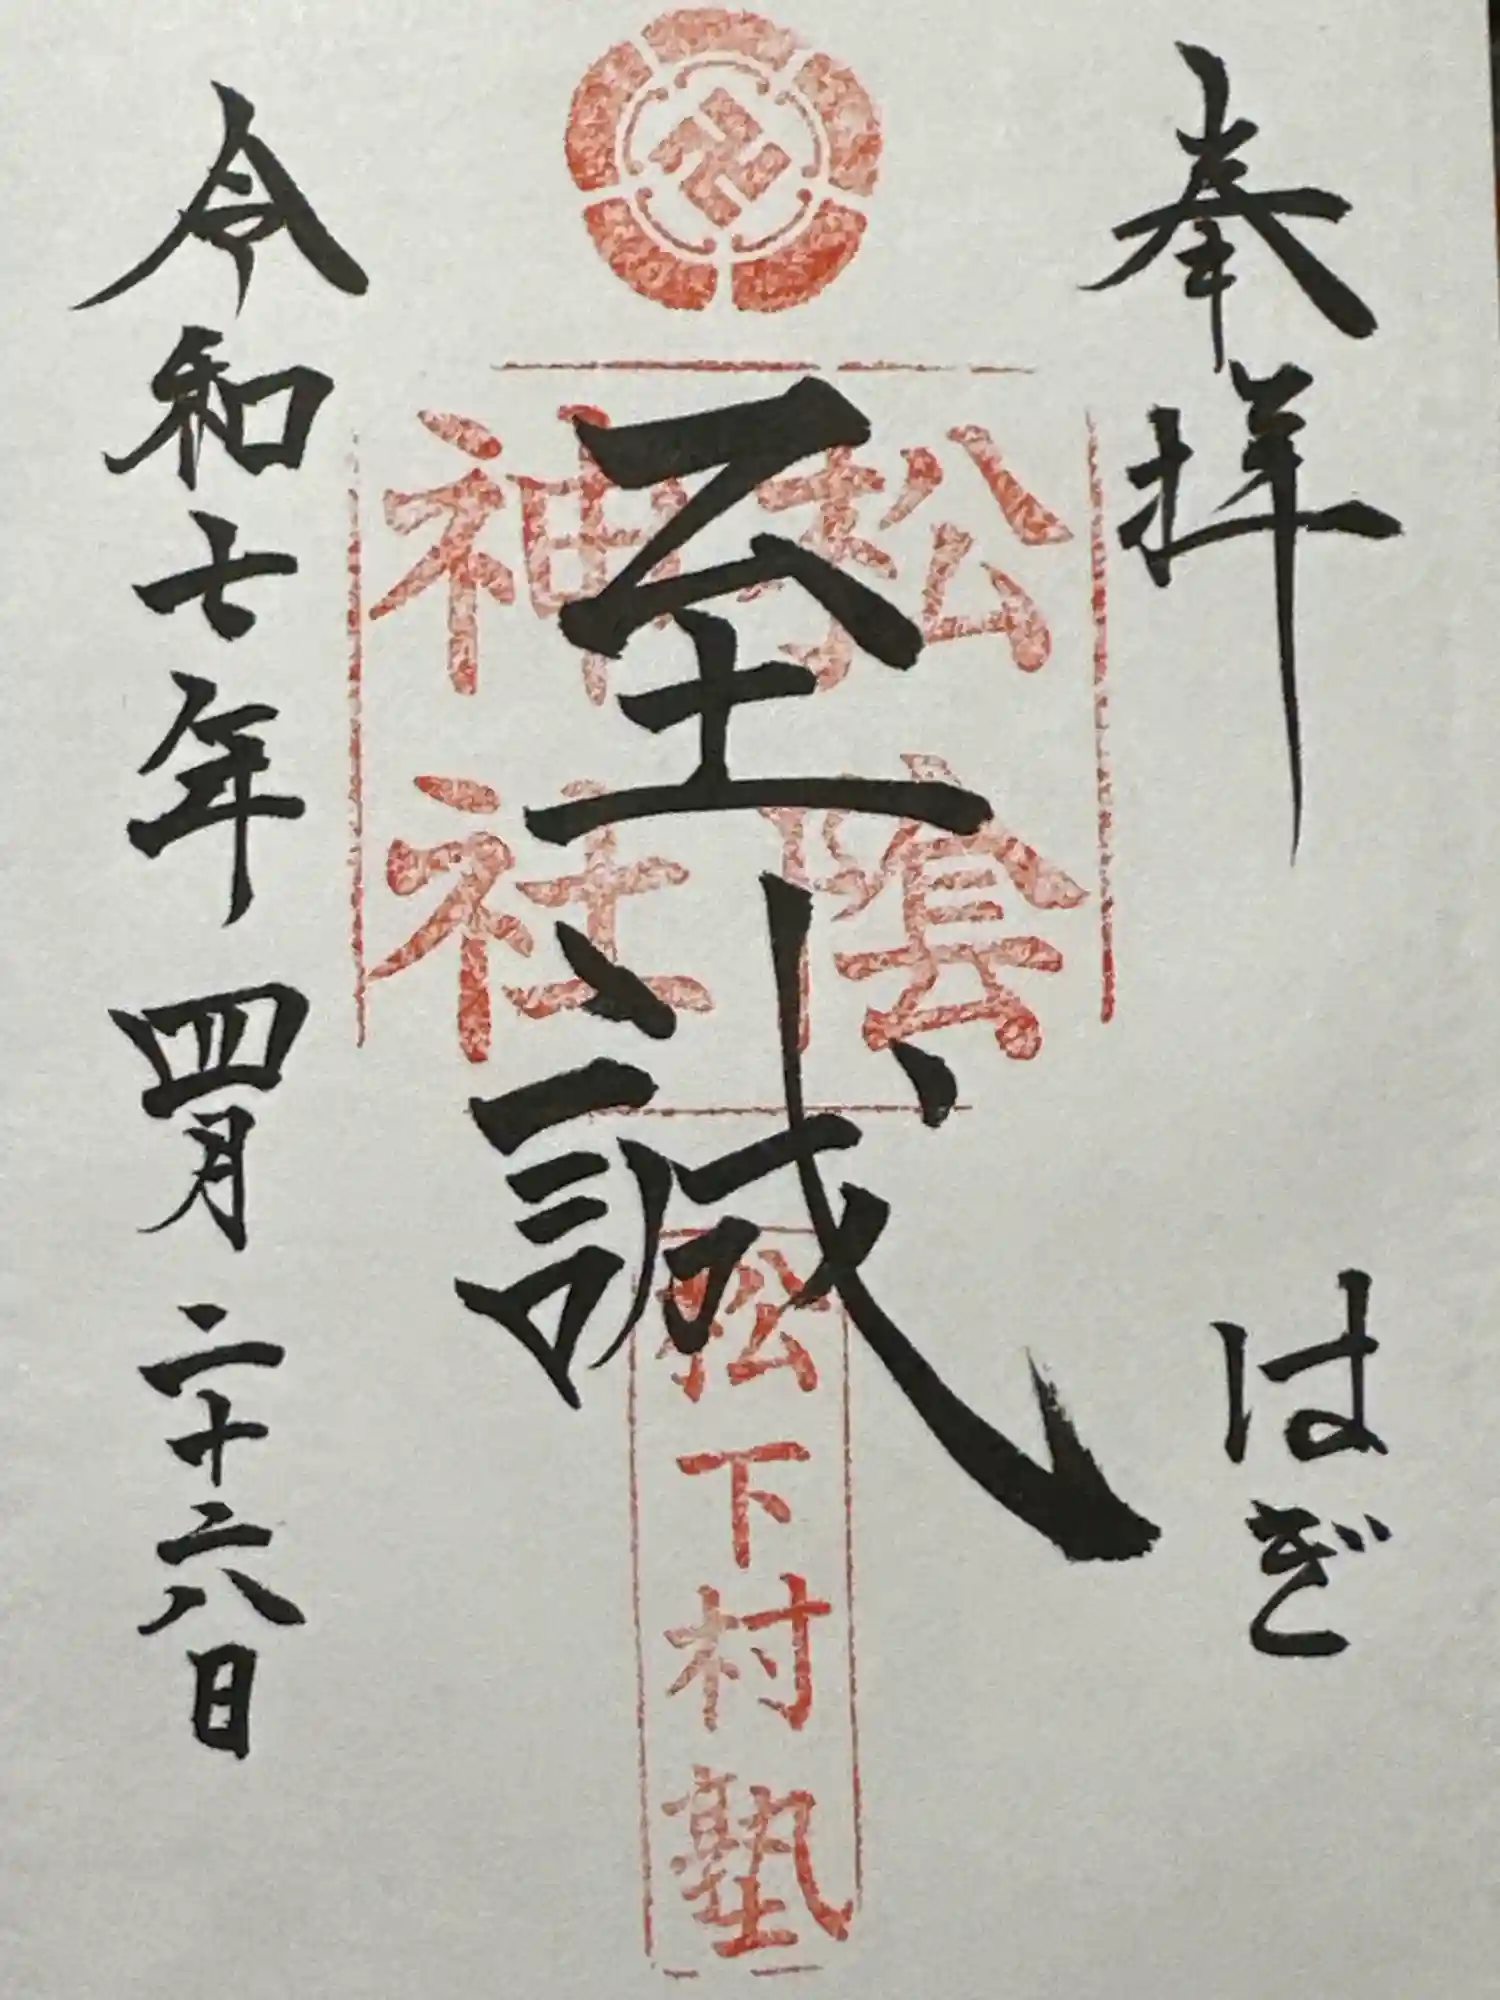 奉拝
はぎ
至誠
松陰
神社
松下村塾
令和七年四月二十六日